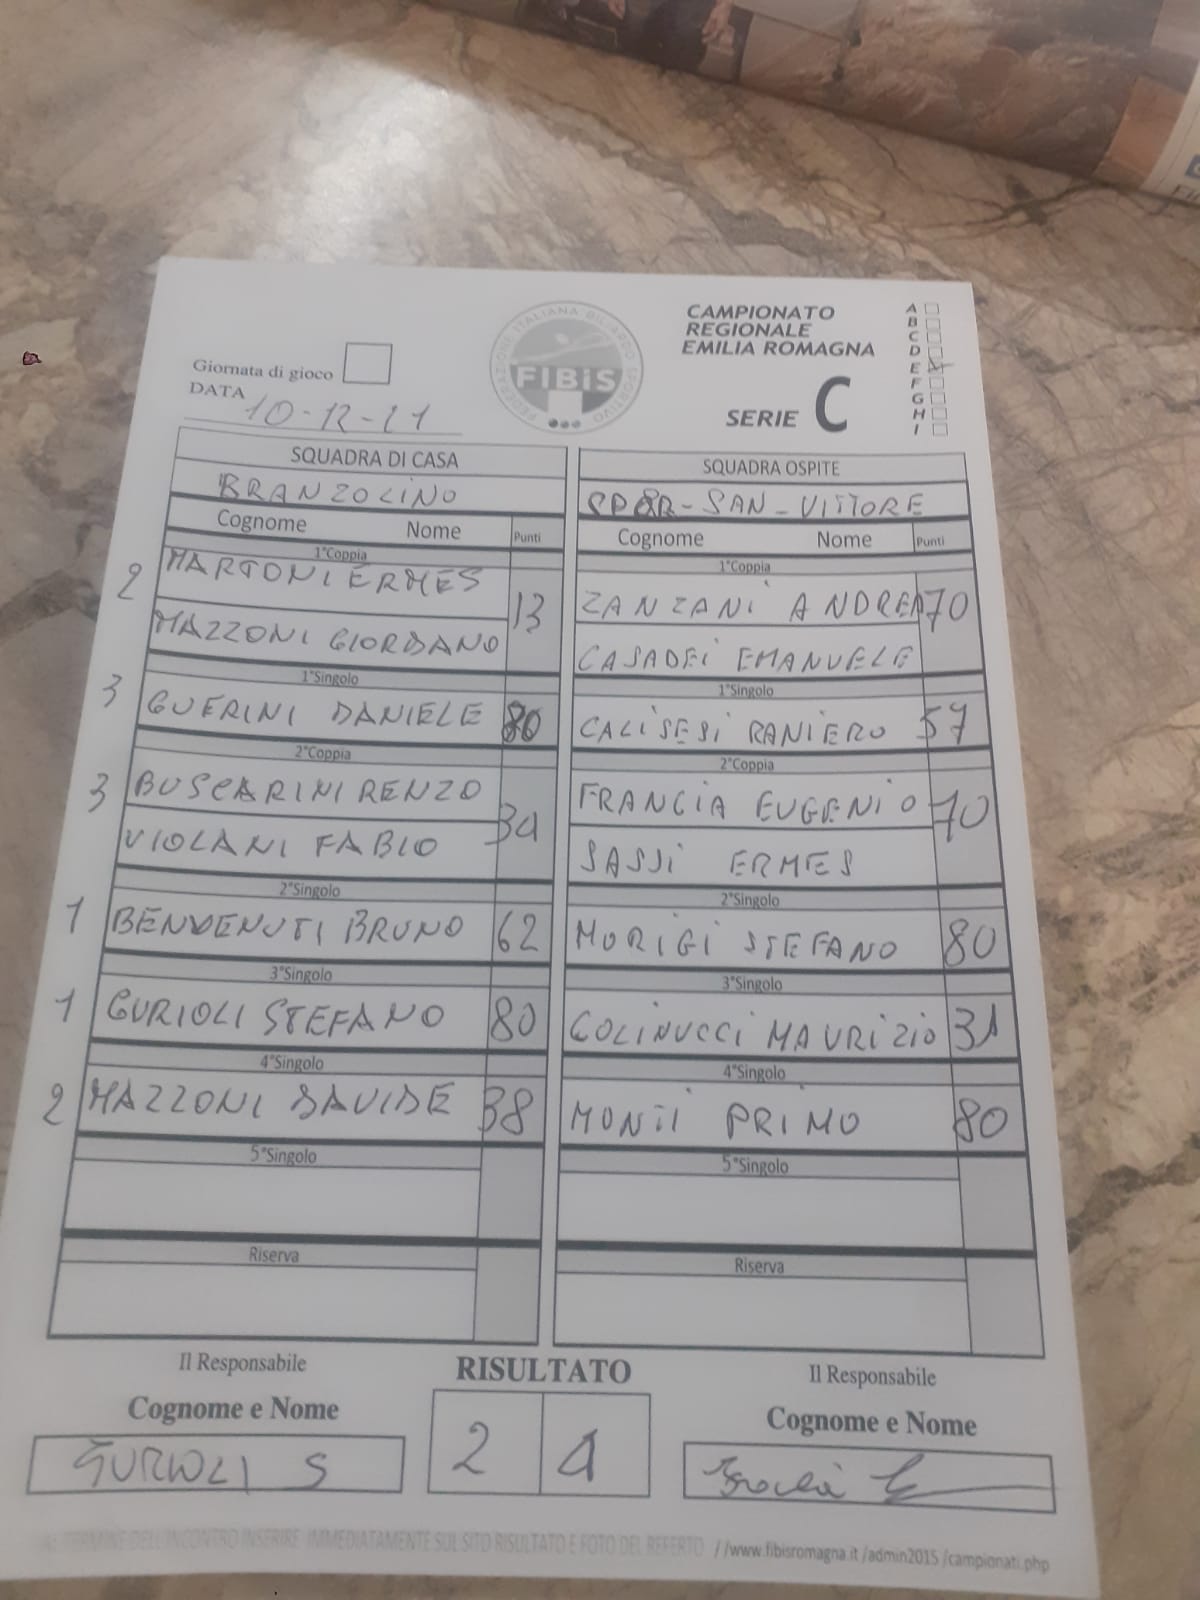 CAMPIONATO
REGIONALE
EMILIA ROMAGNA
SERIE C
A
B
C
D
E
F
G
H
I
FEDERAZIONE ITALIANA BILIARDO SPORTIVO
FIBiS
Giornata di gioco
DATA 10-12-21
SQUADRA DI CASA SQUADRA OSPITE
BRANZOLINO SAN-VITTORE
Cognome Nome Punti Cognome Nome Punti
1°Coppia 1°Coppia
2 MARTONI ERMES 13 ZANZANI ANDREA 70
MAZZONI GIORDANO CASADEI EMANUELE
1°Singolo 1°Singolo
3 GUERINI DANIELE 80 CALISESI RANIERO 57
2°Coppia 2°Coppia
3 BUSCARINI RENZO FRANCIA EUGENIO 70
VIOLANI FABIO SASSI ERMES
2°Singolo 2°Singolo
1 BENVENUTI BRUNO 62 MORIGI STEFANO 80
3°Singolo 3°Singolo
1 GURIOLI STEFANO 80 COLINUCCI MAURIZIO 31
4°Singolo 4°Singolo
2 MAZZONI DAVIDE 38 MONTI PRIMO 80
5°Singolo 5°Singolo
Riserva Riserva
Il Responsabile RISULTATO Il Responsabile
Cognome e Nome Cognome e Nome
GURIOLI S 2 4
TERMINE DELL'INCONTRO INSERIRE IMMEDIATAMENTE SUL SITO RISULTATO E FOTO DEL REFERTO //www.fibisromagna.it/admin2015/campionati.php